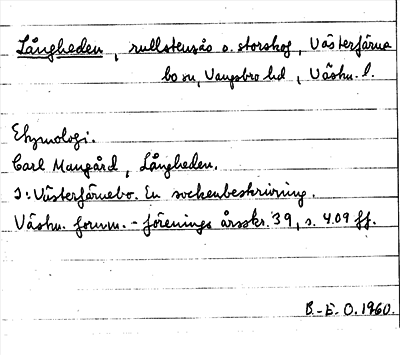 Långheden, rullstensås o. storskog, Västerfärnebo
bo sn, Vangsbro hd, Västm. l.
Etymologi.
Carl Mangård, Långheden.
I: Västerfärnebo. En sockenbeskrivning.
Västm. fornm. - förenings årsskr. 39, s. 409 ff.
B.-E. O. 1960.